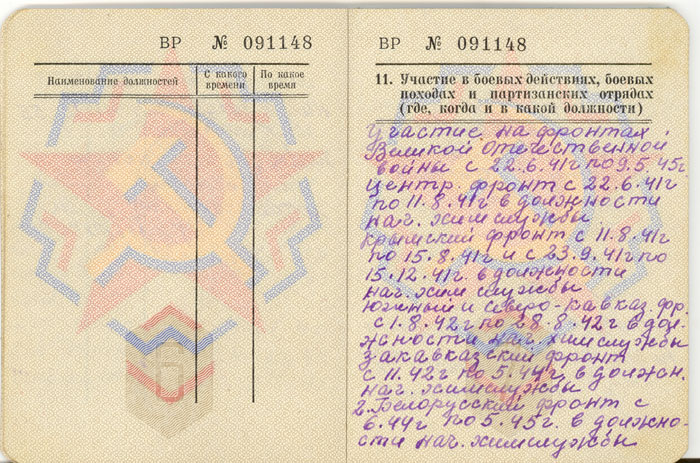 ВР № 091148
Наименование должностей
С какого времени
По какое время
ВР № 091148
11. Участие в боевых действиях, боевых
походах и партизанских отрядах
(где, когда и в какой должности)
Участие на фронтах
Великой Отечественной
войны с 22.6.41г по 9.5.45г
Центр. фронт с 22.6.41г
по 11.8.41г в должности
нач. химслужбы
Крымский фронт с 11.8.41г
по 15.8.41г и с 23.9.41г по
15.12.41г. в должности
нач. хим службы
Южный и Северо-Кавказ. фр.
с 1.8.42г по 28.8.42г в дол-
жности нач. химслужбы
Закавказский фронт
с 11.42г по 5.44г в должн.
нач. химслужбы
2-Белорусский фронт с
6.44г по 5.45г. в должно-
сти нач. химслужбы